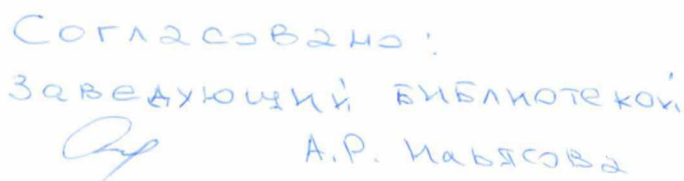 Согласовано:
Заведующий библиотекой
А.Р. Ильясова